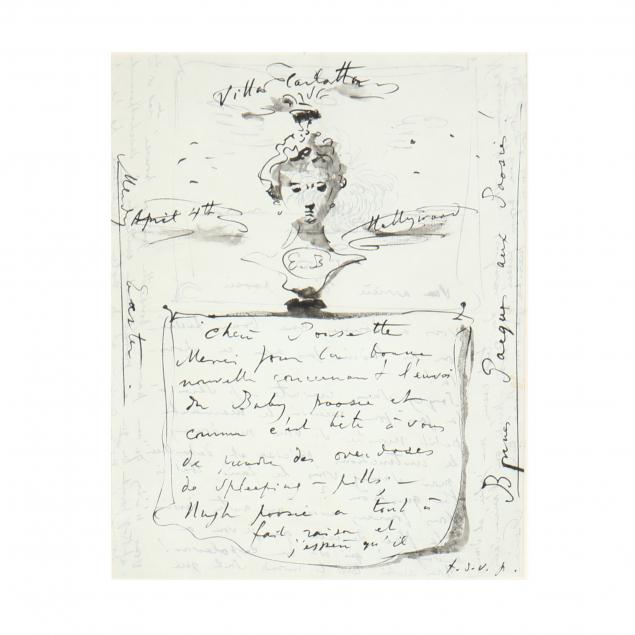 Villa Carlotta
April 4th
Hollywood
Merry Easter.
Bonnes Paques aux Poosies!
E. B.
Cher Poosette
Merci pour la bonne
nouvelle concernant l'envoi
du Baby poosie et
comme c'est bête à vous
de prendre des overdoses
de sleeping-pills. –
Hugh poosie a tout à
fait raison et
j'espère qu'il
t.s.v.p.